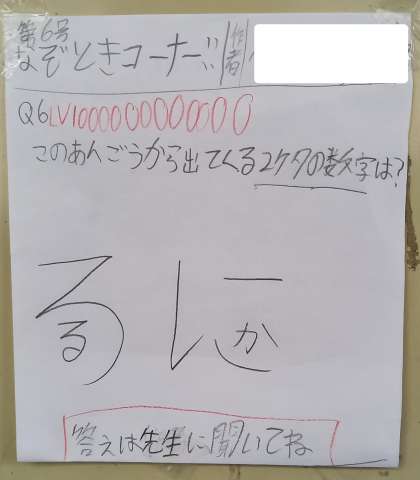 第6号
なぞときコーナー!!!
作者
Q6 LV1000000000000
このあんごうから出てくる2ケタの数字は?
る か
答えは先生に聞いてね